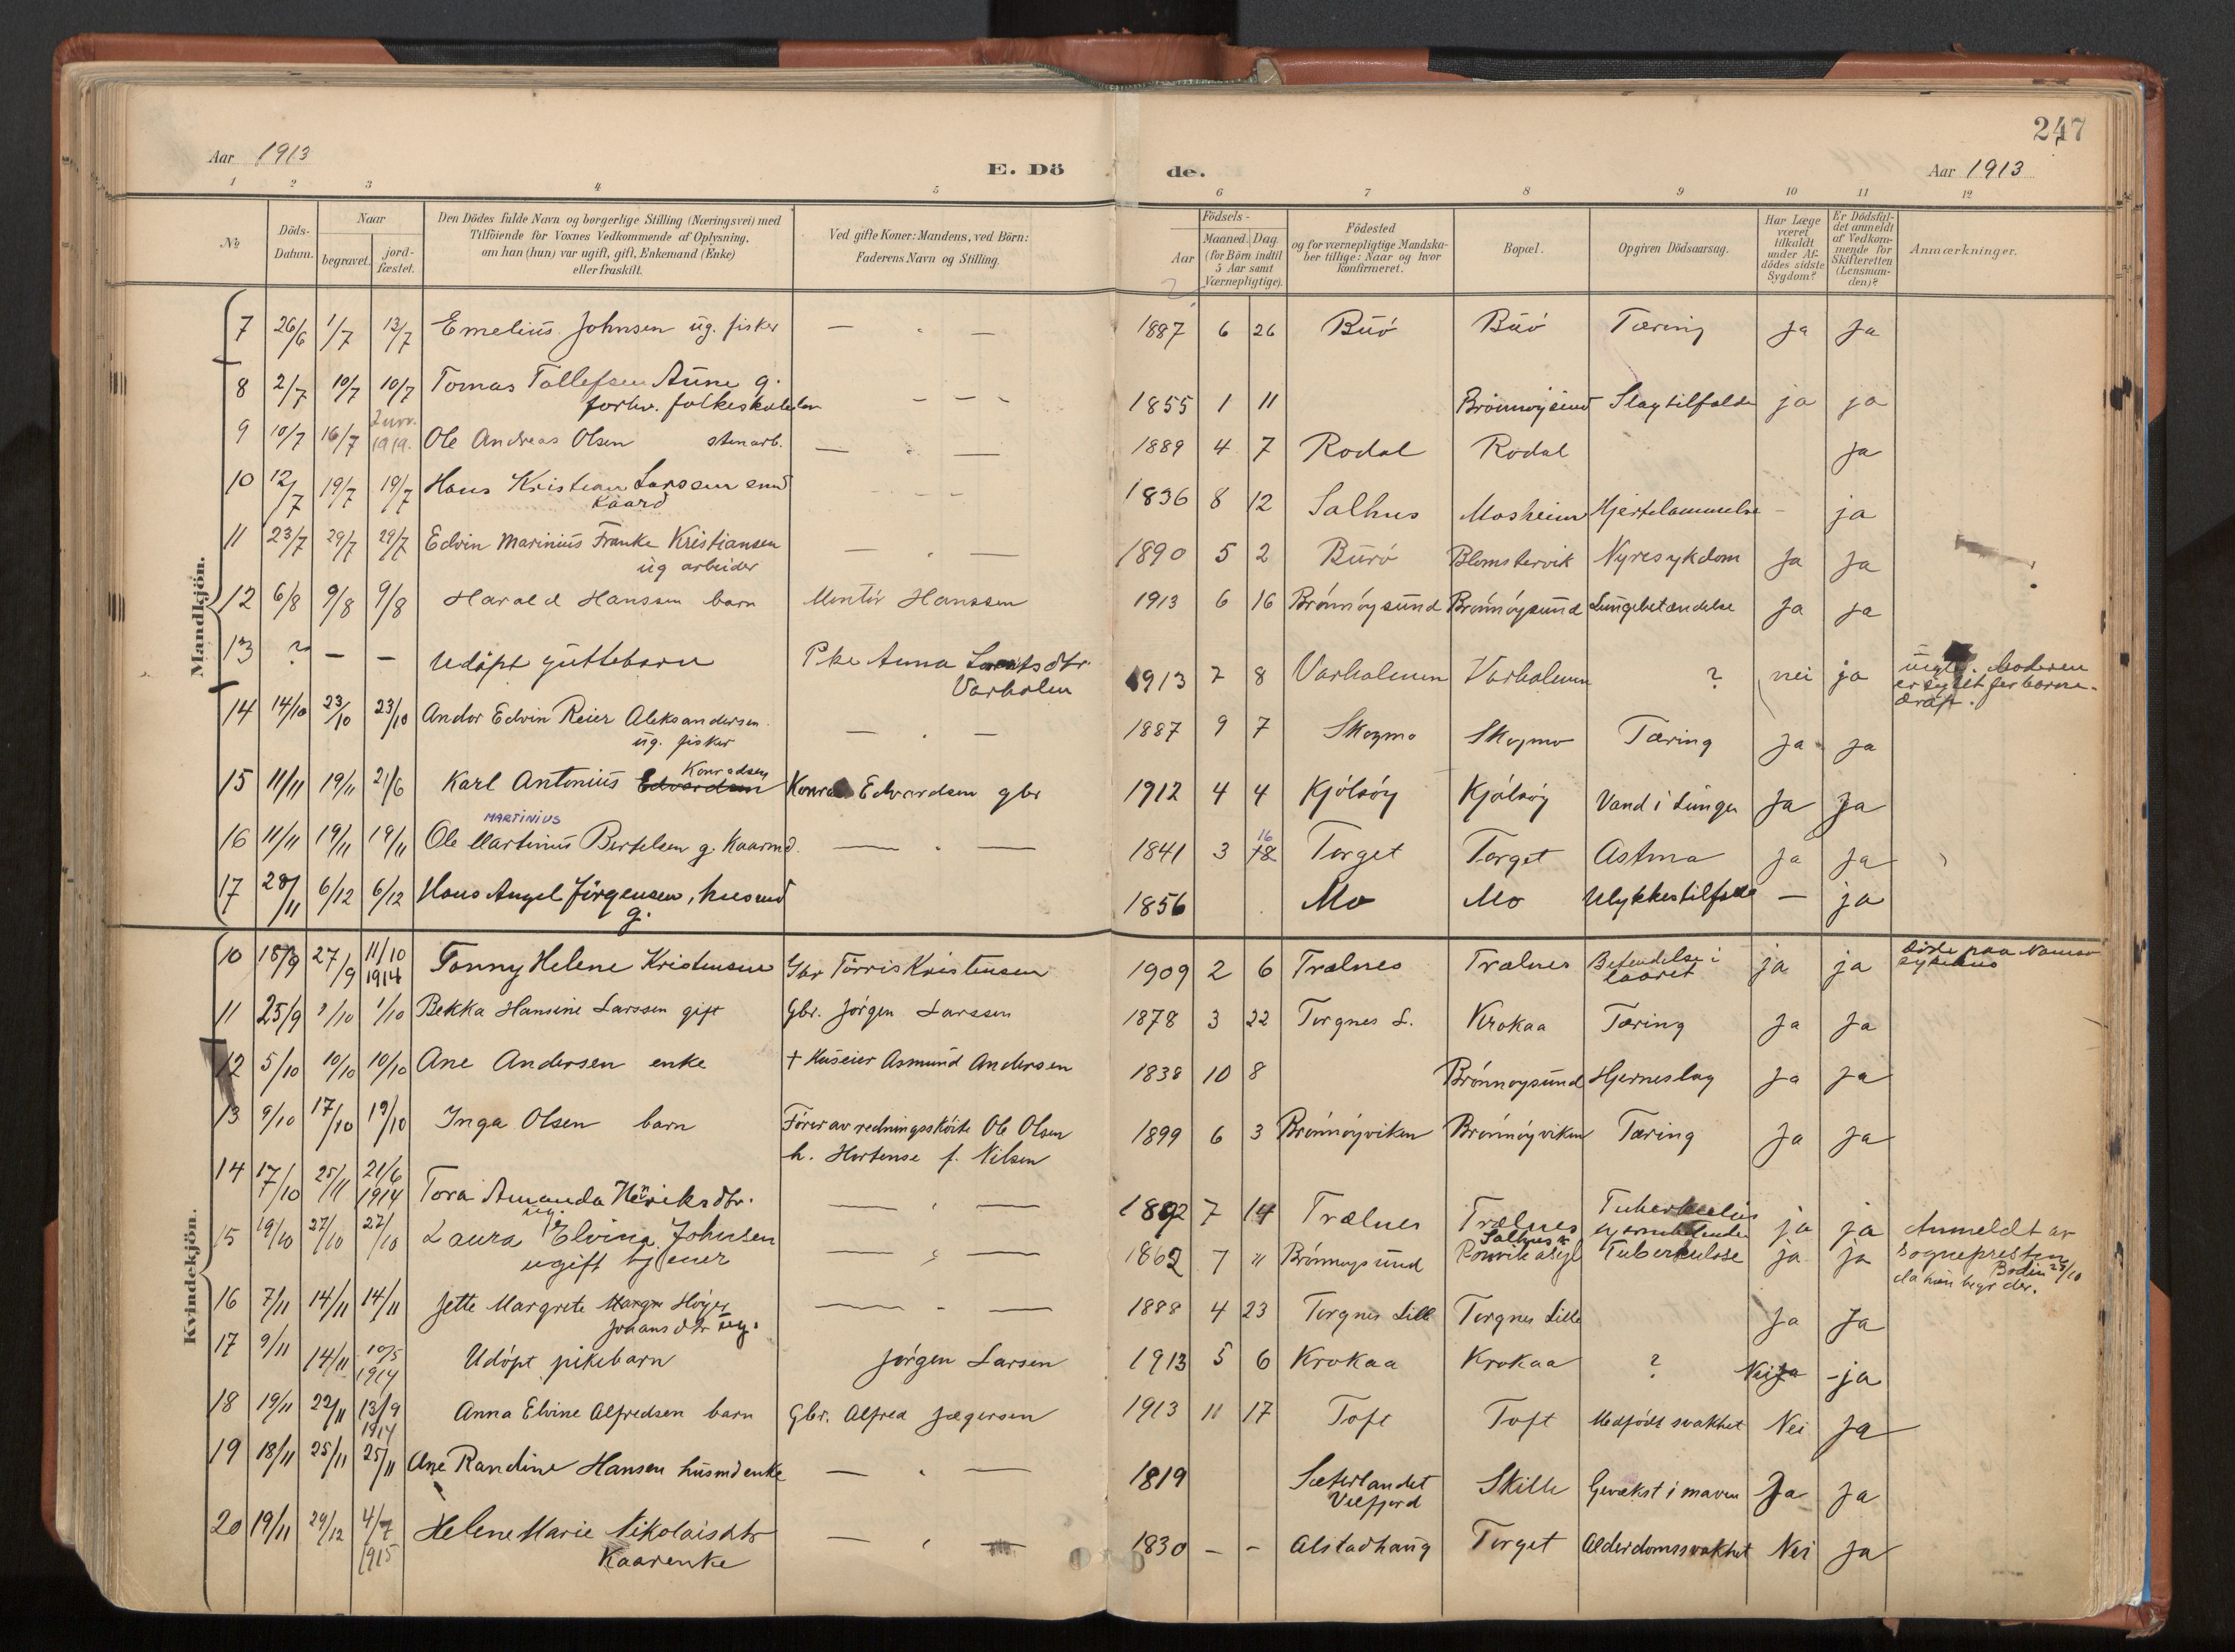 247
Aar 1913
E. Dö
de.
Aar 1913
1 2 3 4 5 6 7 8 9 10 11 12
No
Döds-
Datum.
Naar
begravet.
jord-
fæstet.
Den Dödes fulde Navn og borgerlige Stilling (Næringsvei) med
Tilföiende for Voxnes Vedkommende af Oplysning,
om han (hun) var ugift, gift, Enkemand (Enke)
eller fraskilt.
Ved gifte Koner: Mandens, ved Börn:
Faderens Navn og Stilling.
Födsels-
Aar
Maaned. Dag.
(for Börn indtil
5 Aar samt
Værnepligtige).
Födested
og for værnepligtige Mandska-
ber tillige: Naar og hvor
konfirmeret.
Bopæl.
Opgiven Dödsaarsag.
Har Læge
været
tilkaldt
under Af-
dödes sidste
Sygdom?
Er Dödsfal-
det anmeldt
af Vedkom-
mende for
Skifteretten
(Lensman-
den)?
Anmærkninger.
Mandkjön.
7 26/6 1/7 13/7 Emelius Johnsen ug. fisker — " — 1887 6 26 Buö Buö Tæring Ja Ja
8 2/7 10/7 10/7 Tomas Tollefsen Aune g.
forhv. folkeskolelær 1855 1 11 Brönnöysund Slagtilfælde ja ja
9 10/7 16/7 1919. Ole Andreas Olsen stenarb. — " — 1889 4 7 Rodal Rodal ja
10 12/7 19/7 19/7 Hans Kristian Larssen enkm
Kaard 1836 8 12 Salhus Mosheim Hjertelammelse - ja
11 23/7 29/7 29/7 Edvin Marinius Franke Kristiansen
ug arbeider — " — 1890 5 2 Burö Blomstervik Nyresykdom Ja Ja
12 6/8 9/8 9/8 Harald Hanssen barn Montör Hanssen 1913 6 16 Brönnöysund Brönnöysund Lungebetændelse Ja Ja
13 ? — — Udöpt guttebarn Pke Anna
Varholm 1913 7 8 Varholmen Varholmen ? nei ja
Moderen
er sigtet for barne-
drap.
14 14/10 23/10 23/10 Andor Edvin Reier Aleksandersen
ug. fisker — " — 1887 9 7 Skogmo Skogmo Tæring Ja Ja
15 11/11 19/11 21/6 Karl Antonius Edvardsen Konradsen Konrad Edvardsen gbr 1912 4 4 Kjölsöy Kjölsöy Vand i Lunger Ja Ja
MARTINIUS
16 11/11 19/11 19/11 Ole Martinus Bertelsen g. Kaarmd. — " — 1841 3 18 16 Torget Torget Astma Ja Ja
17 28/11 6/12 6/12 Hans Angel Jörgensen, husmd
g. 1856 Mo Mo Ulykkestilfælde — ja
Kvindekjön.
10 18/9 27/9 11/10
1914 Tonny Helene Kristensen Gbr Törris Kristensen 1909 2 6 Trælnes Trælnes Betendelse i
laaret ja ja döde paa Namsos
sykehus
11 25/9 1/10 1/10 Bekka Hansine Larssen gift Gbr. Jörgen Larssen 1878 3 22 Torgnes L. Krokaa Tæring Ja Ja
12 5/10 10/10 10/10 Ane Andersen enke + Huseier Asmund Andersen 1838 10 8 Brönnoysund Hjerneslag Ja Ja
13 9/10 17/10 19/10 Inga Olsen barn Förer av redningssköite Ole Olsen
h. Hortense f. Nilsen 1899 6 3 Brönnöyviken Brönnöyviken Tæring Ja Ja
14 17/10 25/11 21/6
1914 Tora Amanda Henriksdtr.
ug. — " — 1892 7 14 Trælnes Trælnes Tuberkulös
ja ja
15 19/10 27/10 27/10 Laura Elvine Johnsen
ugift tjener — " — 1862 7 " Brönnoysund Salhus
Rönvik asyl Tuberkulose ja ja Anmeldt av
sognepresten
Bodin 25/10
da hun begr der.
16 7/11 14/11 14/11 Jette Margrete Margre Höyer
Johansdtr ug. — " — 1888 4 23 Torgnes Lille Torgnes Lille Ja Ja
17 9/11 14/11 10/5
1914 Udöpt pikebarn Jörgen Larsen 1913 5 6 Krokaa Krokaa ? Nei Ja - ja
18 19/11 22/11 13/9
1914 Anna Elvine Alfredsen barn Gbr. Alfred Jægersen 1913 11 17 Toft Toft Medfödt svakhet Nei Ja
19 18/11 25/11 25/11 Ane Randine Hansen husmdenke — " — 1819 Sæterlandet
Velfjord Skille Gevækst i maven Ja Ja
20 19/11 29/12 4/7
1915 Helene Marie Nikolaisdtr
Kaarenke — " — 1830 - - Alstadhaug Torget Alderdomssvakhet Nei Ja